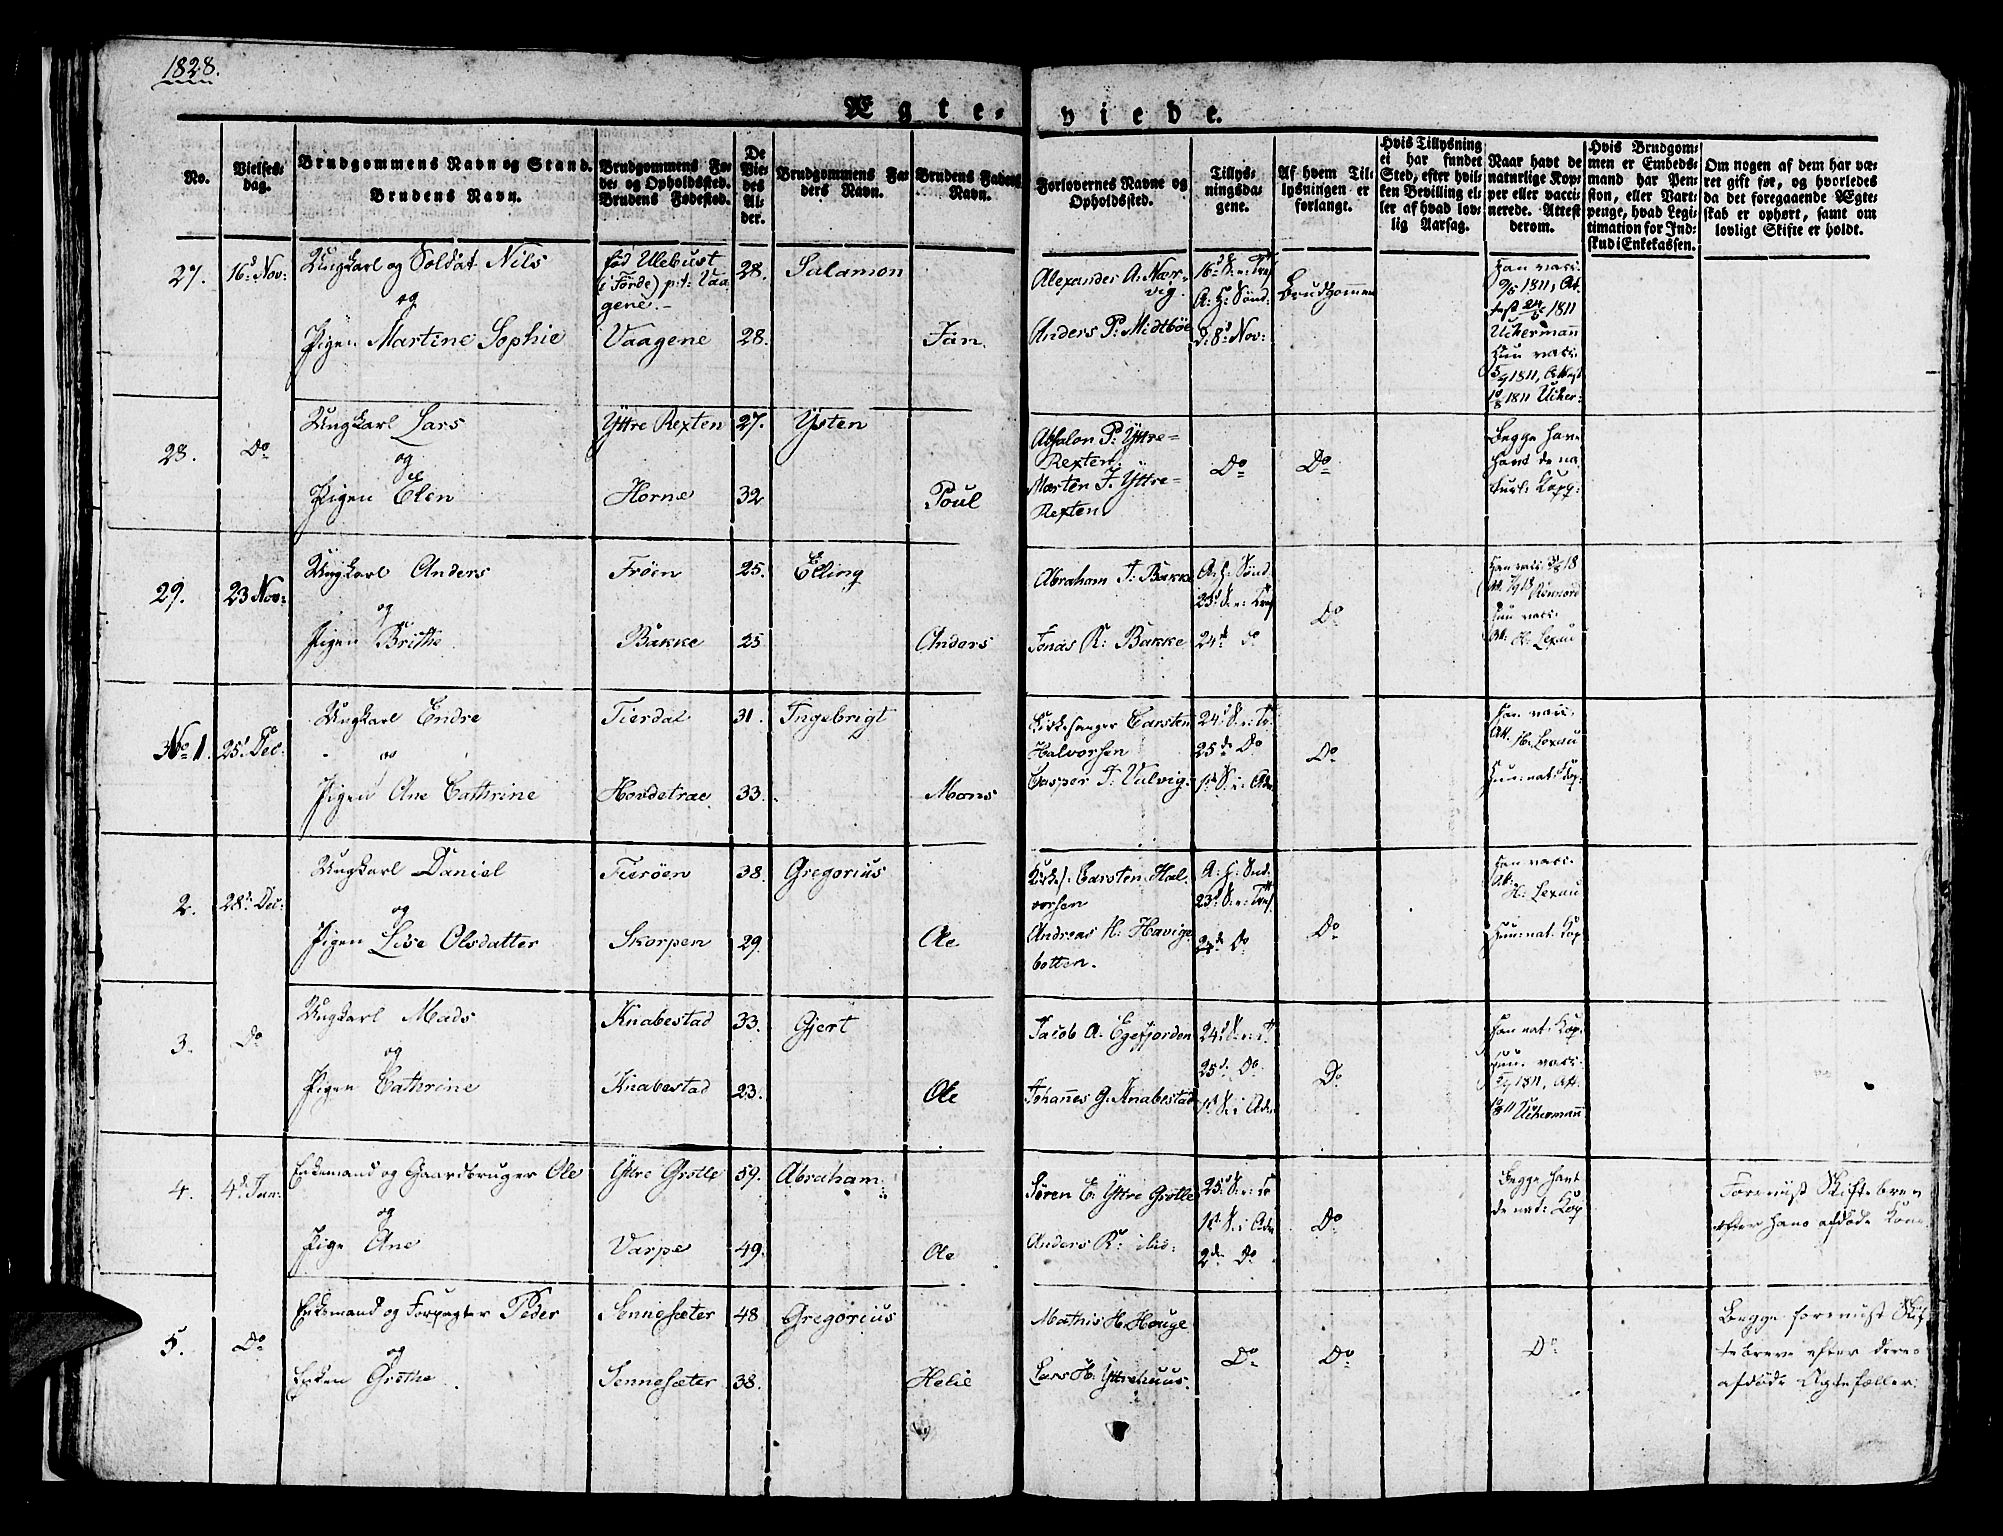 1828.
Ægte-viede.
No.
Vielses-
dag.
Brudgommens Navn og Stand.
Brudens Navn.
Brudgommens Fø-
de- og Opholdssted.
Brudens Fødested.
De
Vie-
des
Al-
der.
Brudgommens Fa-
ders Navn.
Brudens Faders
Navn.
Forlovernes Navne og
Opholdssted.
Tillys-
ningsda-
gene.
Af hvem Til-
lysningen er
forlangt.
Hvis Tillysning
ei har fundet
Sted, efter hvil-
ken Bevilling el-
ler af hvad lov-
lig Aarsag.
Naar havt de
naturlige Kop-
per eller vacci-
nerede. Attest
derom.
Hvis Brudgom-
men er Embeds-
mand har Pen-
sion, eller Vart-
penge, hvad Legi-
timation for Ind-
skud i Enkekassen.
Om nogen af dem har væ-
ret gift før, og hvorledes
da det foregaaende Ægte-
skab er ophørt, samt om
lovligt Skifte er holdt.
27. 16d Nov:
Ungkarl og Soldat Nils
og
Pigen Martine Sophie
fød Ullebust
(i Førde) p:t: Vaa-
gene.
Vaagene
28.
28.
Salamon
Jan.
Alexander A: Nær-
vig.
Anders P: Midtbøe
16d S. e: Tr.
A: H: Sønd.
D: 8d Nov:
Brudgommen
Han vacc.
9/5 1811, At-
test 1811
Uchermann
Hun vacc.
5/9 1811, Attest
1811 Ucher-
28. Do
Ungkarl Lars
og
Pigen Elen
Yttre Rexten
Horne
27.
32
Ysten
Poul
Absalon P: Yttre-
Rexten
Morten J: Yttre-
Rexten
Do
Do
Begge have
havt de na-
turl: Kopp:
29. 23 Nov:
Ungkarl Anders
og
Pigen Brithe
Frøen
Bakke
25.
25
Elling
Anders
Abraham J: Bakke
Jonas R: Bakke
A: H: Sønd.
23d S. e: Tref
24d
Do
Hun vacc.
Att. H: Lexau
No 1. 25d Dec:
Ungkarl Endre
og
Pigen Ane Cathrine
Tierdal
Hovdetræe
31.
33.
Ingebrigt
Mons
Kirkesanger Carsten
Halvorsen
Casper J: Vulvig.
24d S. e: Tr.
25de Do
1d S: i Adv
Do
Han vacc.
Att. H: Lexau
Hun: nat: Kop:
2. 28d Dec:
Ungkarl Daniel
og
Pigen Lise Olsdatter
Tierøen
Skorpen
38.
29.
Gregorius
Ole
Kirkes. Carsten Hal-
vorsen
Andreas H: Havige-
botten.
A: H: Snd.
23d S. e: Tref
24de Do
Do
Han vacc.
Att. H: Lexau
Hun: nat. Kop
3. Do
Ungkarl Mads
og
Pigen Cathrine
Knabestad
Knabestad
33.
23.
Gjert
Ole
Jacob A. Egefjorden
Johannes G. Knabestad
24d S. e: Tr
25d: Do
1d S. i Adv
Do
Han nat: Kop.
Hun. vacc.
1811, Att.
Uchermann
4. 4d Jan:
Enkemand og Gaardbruger Ole
og
Pige Ane
Yttre Grotle
Varpe
59.
49.
Abraham.
Ole
Søren E: Yttre Grotle
Anders R: ibid:
25d S. e: Tr
1d S. i Adv
2de Do
Do
Begge havt
de nat: Kop
Foreviist Skiftebrev
efter hans afdøde Kone.
5. Do
Enkemand og Forpagter Peder
og
Enken Grethe
Sennesæter
Sennesæter
48
38.
Gregorius
Helie
Mathis H. Houge
Lars H. Yttrehuus.
Do
Do
Do
Begge foreviist Skif-
tebreve efter deres
afdøde Ægtefæller.